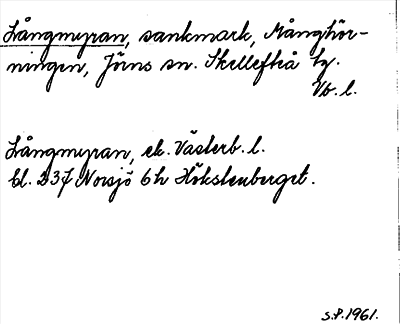 Långmyran, sankmark, Månghör-
ningen, Jörns sn. Skellefteå tg.
Vb. l.
Långmyran, ek. Västerb. l.
bl. 237 Norsjö 6h Hökstenberget.
S.P. 1961.